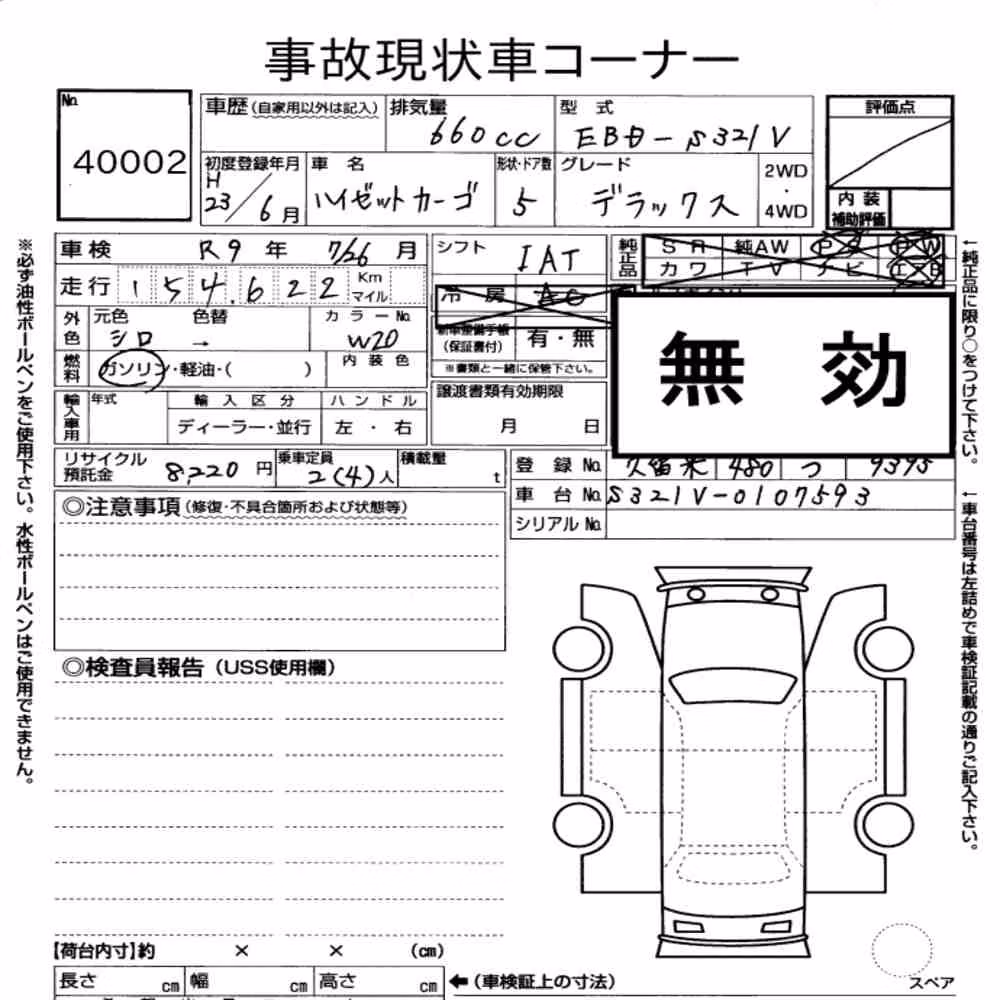 事故現状車コーナー
No. 40002
車歴(自家用以外は記入) 排気量 660cc 型式 EBD-S321V
初度登録年月 H23/6月 車名 ハイゼットカーゴ 形状・ドア数 5 グレード デラックス 2WD・4WD
評価点
内装補助評価
車検 R9年 7/26月
シフト IAT
純正品 SR 純AW PS PW
カワ TV ナビ エアB
走行 154,622 Km マイル
冷房 AC
外色 元色 シロ 色替 → カラーNo. W20
新車整備手帳(保証書付) 有・無
※書類と一緒に保管下さい。
無効
燃料 ガソリン・軽油・( ) 内装色
譲渡書類有効期限 月 日
輸入車用 年式 輸入区分 ディーラー・並行 ハンドル 左・右
リサイクル預託金 8,220円 乗車定員 2(4)人 積載量 t
登録No. 久留米 480 つ 9395
車台No. S321V-0107593
シリアルNo.
◎注意事項(修復・不具合箇所および状態等)
◎検査員報告(USS使用欄)
【荷台内寸】約 × × (cm)
長さ cm 幅 cm 高さ cm ←(車検証上の寸法)
スペア
※必ず油性ボールペンをご使用下さい。水性ボールペンはご使用できません。
←純正品に限り○をつけて下さい。
←車台番号は左詰めで車検証記載の通りご記入下さい。